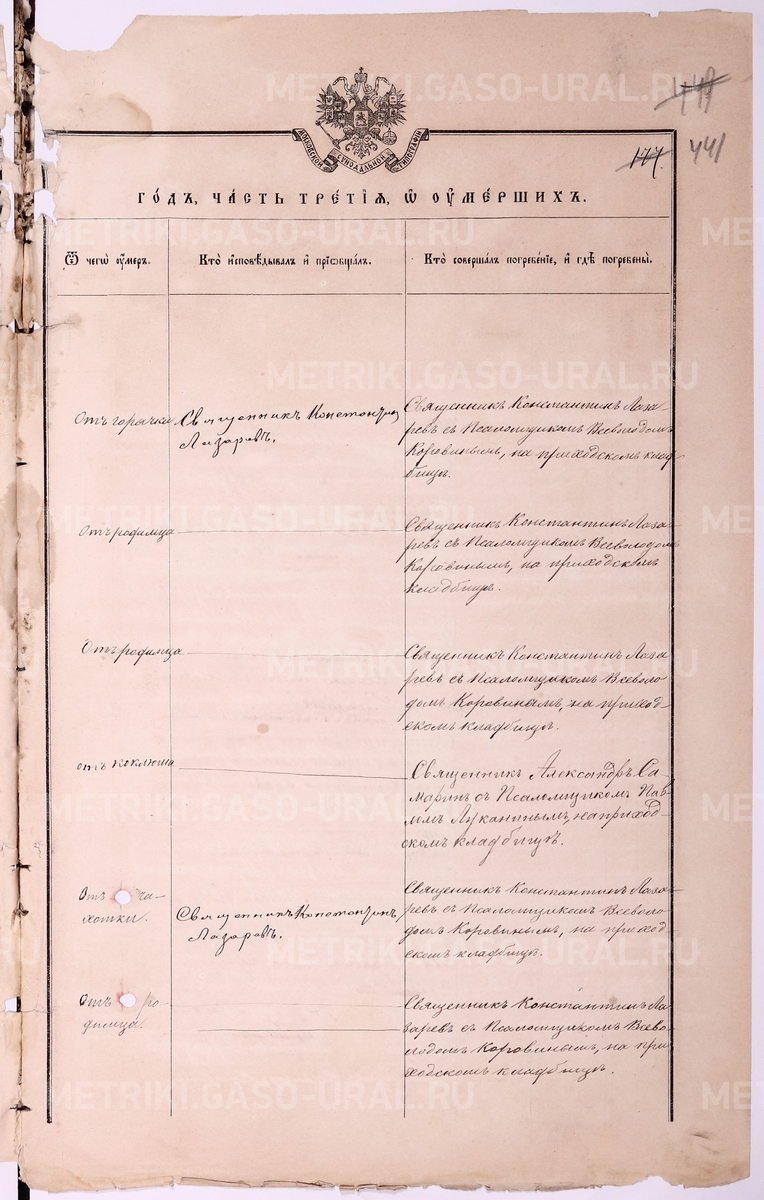 METRIKI.GASO-URAL.RU
441
177
МОСКОВСКОЙ СѴНОДАЛЬНОЙ ТИПОГРАФІИ
ГО́ДЪ, ЧА́СТЬ ТРЕ́ТІѦ, Ѽ ОУ҆МЕ́РШИХЪ.
Ѿ чегѡ̀ оу҆́меръ.
Кто̀ и҆сповѣ́дывалъ и҆ прїѡбща́лъ.
Кто̀ соверша́лъ погребе́нїе, и҆ гдѣ̀ погребены̀.
Отъ горячки
Священникъ Константинъ
Лазаревъ.
Священникъ Константинъ Лаза-
ревъ съ Псаломщикомъ Всеволодомъ
Коровинымъ, на приходскомъ клад-
бищѣ.
Отъ родимца
Священникъ Константинъ Лаза-
ревъ съ Псаломщикомъ Всеволодомъ
Коровинымъ, на приходскомъ
кладбищѣ.
Отъ родимца
Священникъ Константинъ Лаза-
ревъ съ Псаломщикомъ Всеволо-
домъ Коровинымъ, на приход-
скомъ кладбищѣ.
отъ коклюша
Священникъ Александръ Са-
маринъ съ Псаломщикомъ Пав-
ломъ Луканинымъ, на приход-
скомъ кладбищѣ.
Отъ ча-
хотки.
Священникъ Константинъ
Лазаревъ.
Священникъ Константинъ Лаза-
ревъ съ Псаломщикомъ Всеволо-
домъ Коровинымъ, на приход-
скомъ кладбищѣ.
Отъ ро-
димца.
Священникъ Константинъ Ла-
заревъ съ Псаломщикомъ Всево-
лодомъ Коровинымъ, на при-
ходскомъ кладбищѣ.